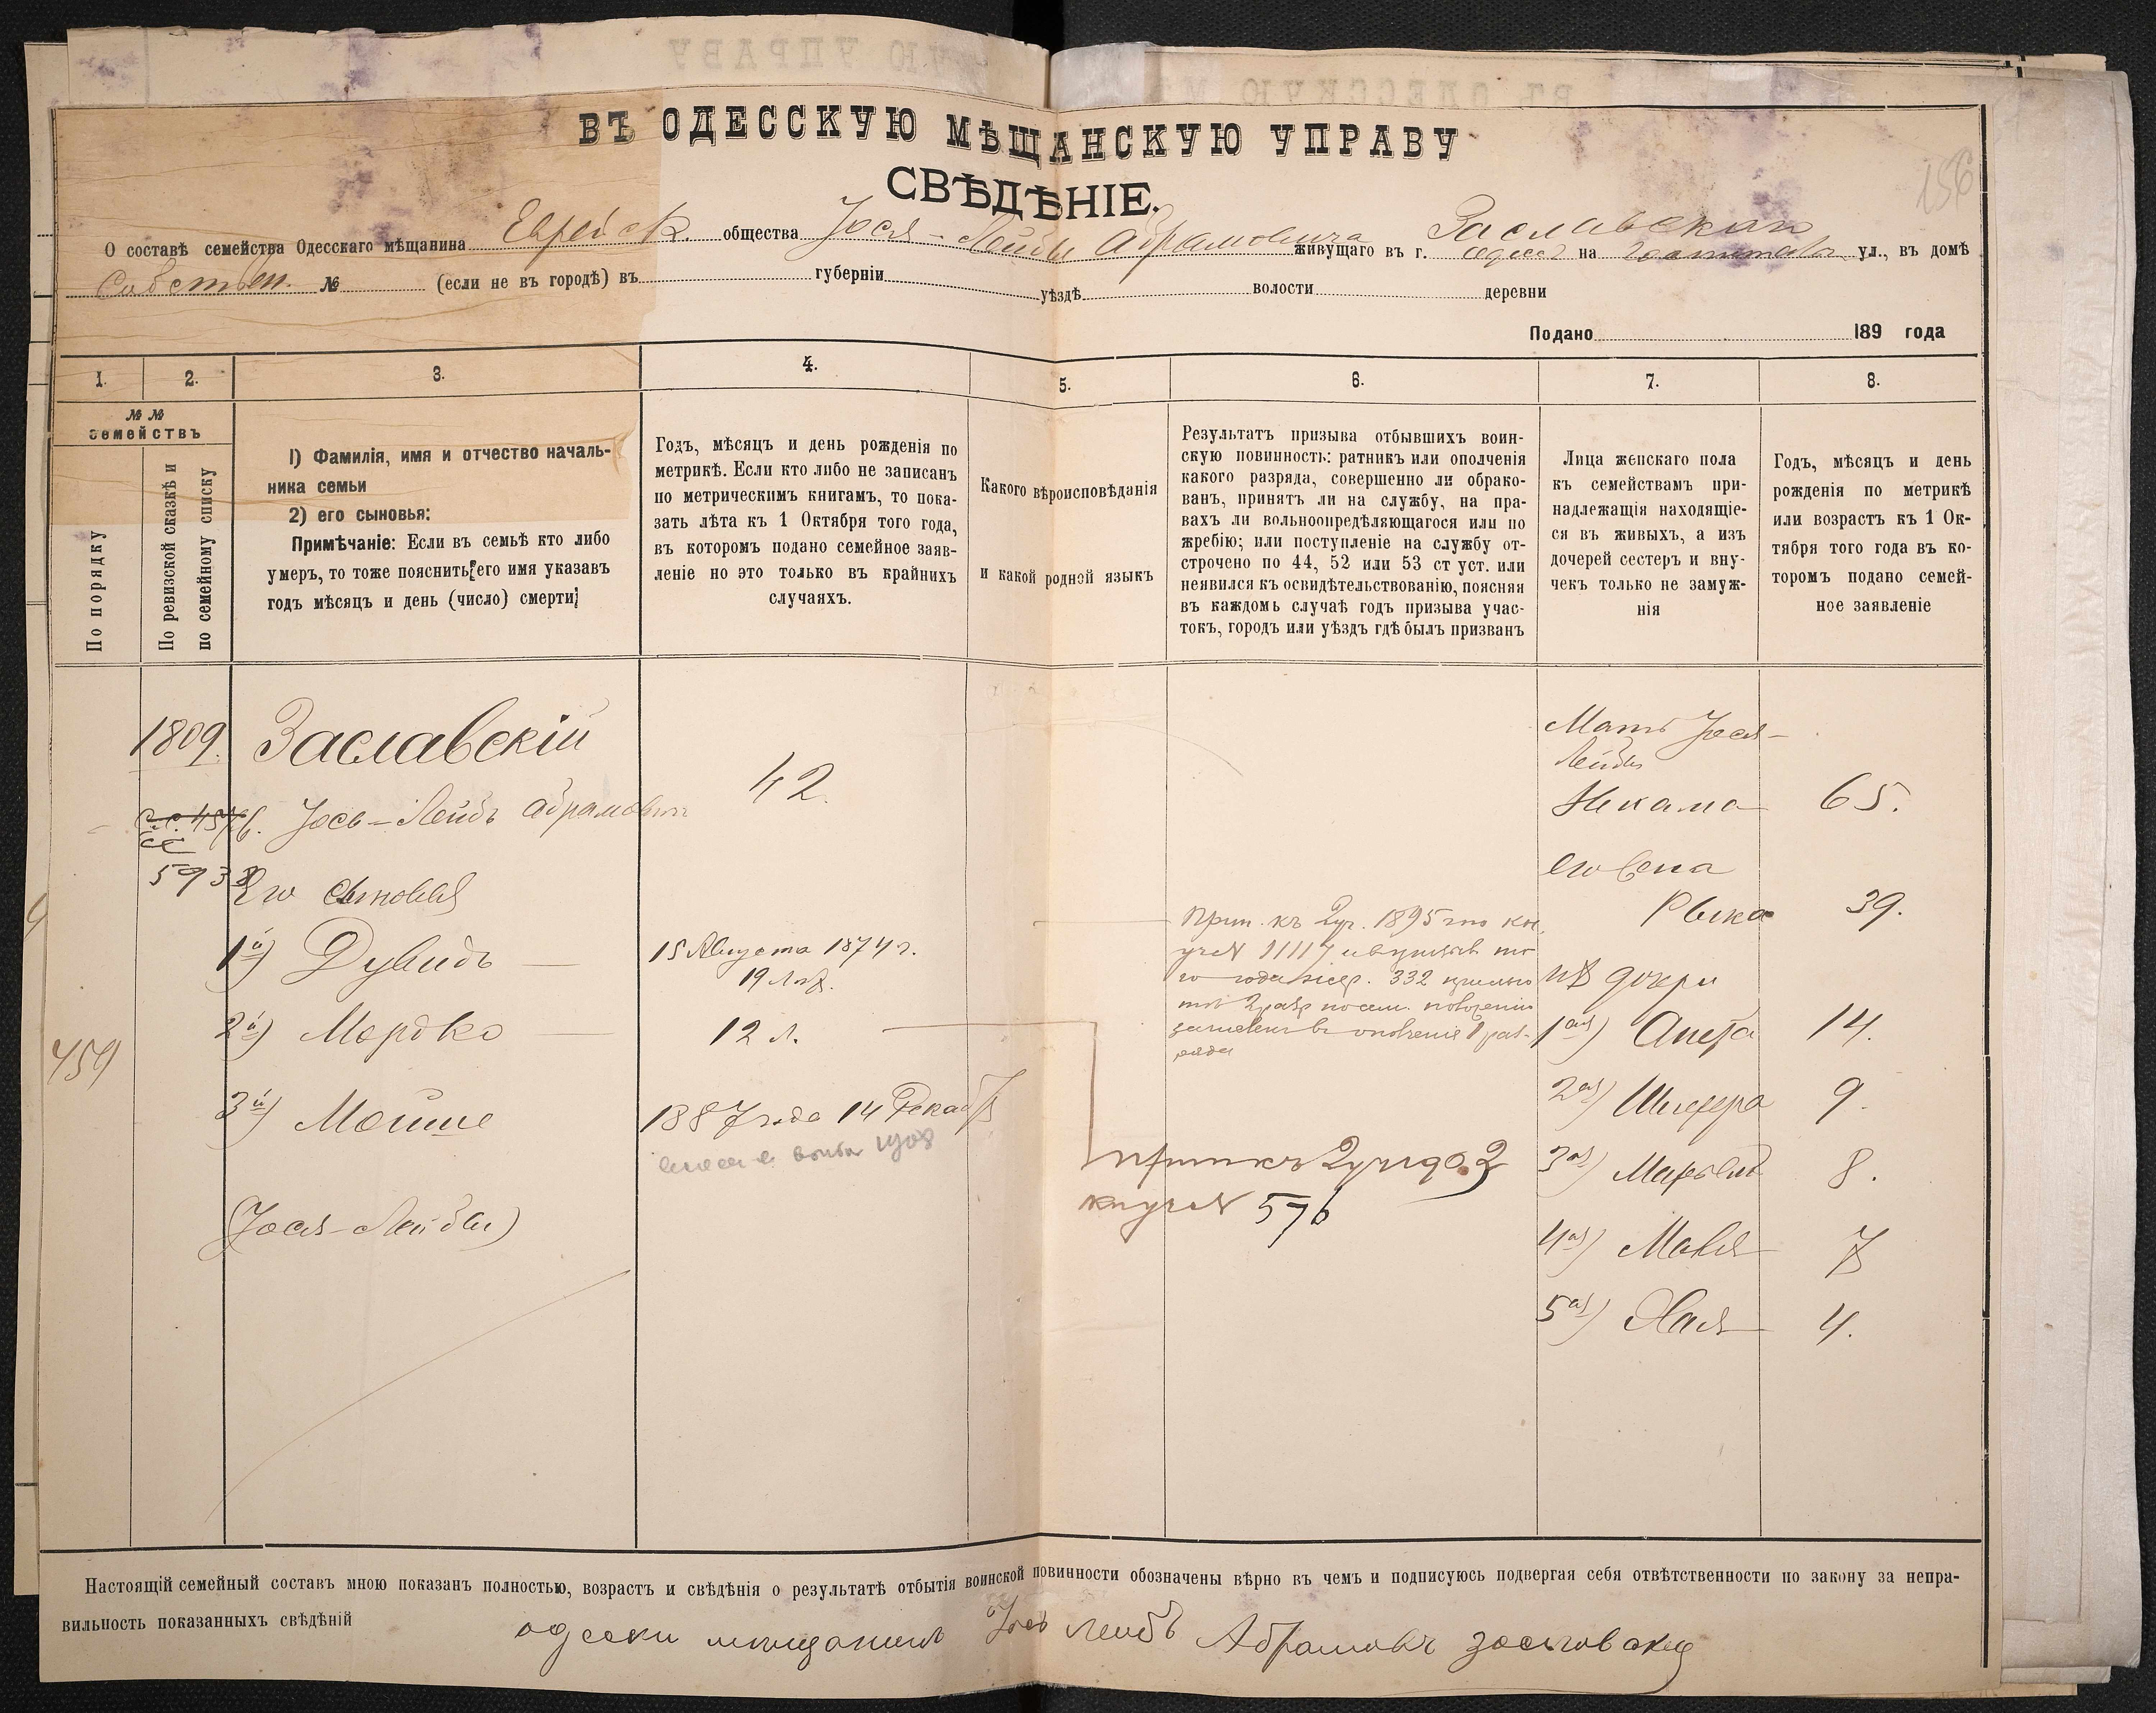 ВЪ ОДЕССКУЮ МѢЩАНСКУЮ УПРАВУ
СВѢДѢНІЕ.
156
О составѣ семейства Одесскаго мѣщанина Еврейск. общества Іося-Лейбы Абрамовича Заславскаго живущаго въ г. Одессѣ на ул., въ домѣ
Собствен. № (если не въ городѣ) въ губерніи уѣздѣ волости деревни
Подано 189 года
1. 2. 3. 4. 5. 6. 7. 8.
№ № семействъ
По порядку
По ревизской сказкѣ и
по семейному списку
1) Фамилія, имя и отчество началь-
ника семьи
2) его сыновья:
Примѣчаніе: Если въ семьѣ кто либо
умеръ, то тоже пояснить его имя указавъ
годъ мѣсяцъ и день (число) смерти;
Годъ, мѣсяцъ и день рожденія по
метрикѣ. Если кто либо не записанъ
по метрическимъ книгамъ, то пока-
зать лѣта къ 1 Октября того года,
въ которомъ подано семейное заяв-
леніе но это только въ крайнихъ
случаяхъ.
Какого вѣроисповѣданія
и какой родной языкъ
Результатъ призыва отбывшихъ воин-
скую повинность: ратникъ или ополченія
какого разряда, совершенно ли обрако-
ванъ, принятъ ли на службу, на пра-
вахъ ли вольноопредѣляющагося или по
жребію; или поступленіе на службу от-
строчено по 44, 52 или 53 ст уст. или
неявился къ освидѣтельствованію, поясняя
въ каждомь случаѣ годъ призыва учас-
токъ, городъ или уѣздъ гдѣ былъ призванъ
Лица женскаго пола
къ семействамъ при-
надлежащія находящіе-
ся въ живыхъ, а изъ
дочерей сестеръ и вну-
чекъ только не замуж-
нія
Годъ, мѣсяцъ и день
рожденія по метрикѣ
или возрастъ къ 1 Ок-
тября того года въ ко-
торомъ подано семей-
ное заявленіе
1809. Заславскій
Іось-Лейбъ Абрамовичъ 42.
5933
Его сыновья
1й) Дувидъ — 15 Августа 1874 г.
19 лѣт.
2й) Мордко — 12 л.
459
3й) Мойше 1887 года 14 Декаб
1908
(Іося-Лейбы)
Прип. къ 2 уч. 1895 го
11117
го года жер. 332
прип къ 2 уч 1902
576
Мать Іося-
Лейбы
Нехама 65.
его жена
Рыка 39.
ихъ дочери
1ая) Анета 14.
2ая) Шифра 9.
3ая) Марьем 8.
4ая) Мавя 7
5ая) Хая 4.
Настоящій семейный составъ мною показанъ полностью, возрастъ и свѣдѣнія о результатѣ отбытія воинской повинности обозначены вѣрно въ чемъ и подписуюсь подвергая себя отвѣтственности по закону за непра-
вильность показанныхъ свѣдѣній
одески мещанинъ Іось Лейбъ Абрамовъ